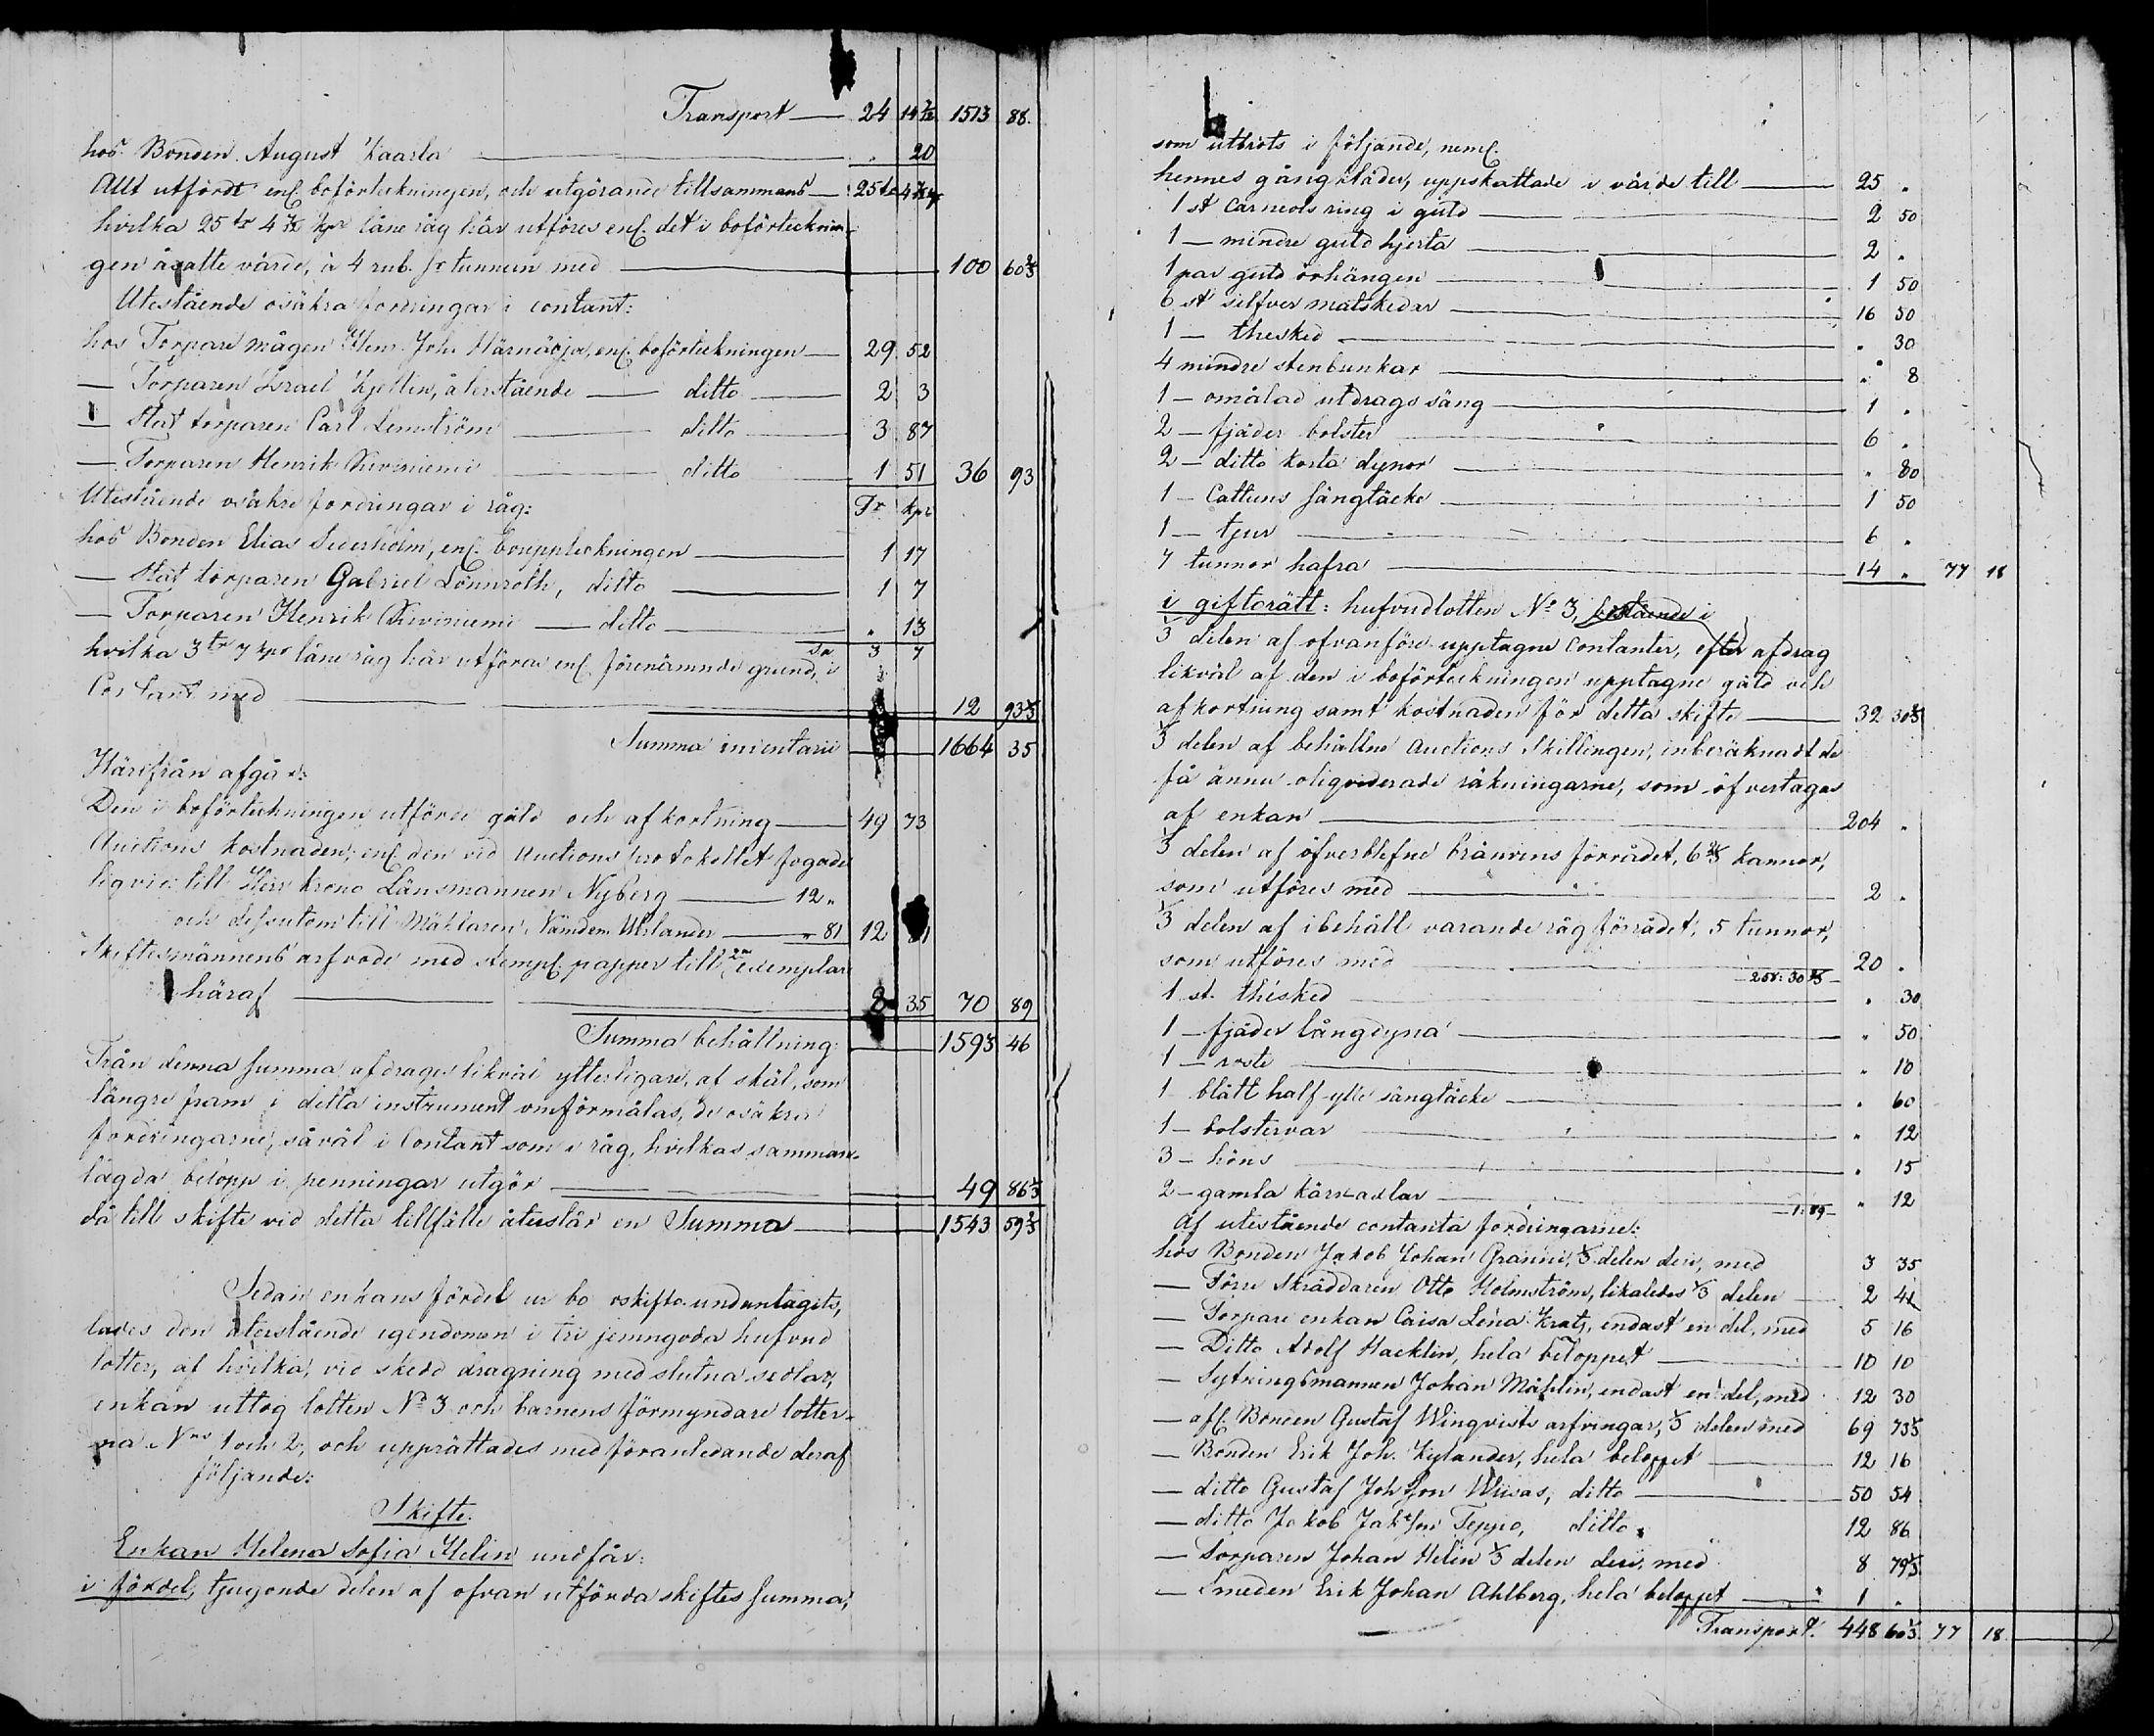 Transport — 24 14 7/12 1513 88.
hos Bonden August Kaarla — " 20
Allt utfördt enl. boförteckningen, och utgörande tillsammans — 25 tr 4 7/12 kpr
hvilka 25 tr 4 7/12 kpr låne råg här utföres enl. det i boförtecknin-
gen åsatte värde, à 4 rub. Sr tunnan med — 100 60 2/3
Utestående osäkra fordringar i contant:
hos Torpare mågen Henr. Joh. Härnäoja, enl. boförteckningen — 29 52
— Torparen Israel Kjellin, återstående — ditto — 2 3
— Stat torparen Carl Lemström — ditto — 3 87
— Torparen Henrik Kiviniemi — ditto — 1 51 36 93
Utestående osäkre fordringar i råg: Tr kpr
hos Bonden Elias Sederholm, enl. bouppteckningen — 1 17
— Stat torparen Gabriel Lönnroth, ditto — 1 7
— Torparen Henrik Kiviniemi — ditto — " 13
hvilka 3 tr 7 kpr låne råg här utföras enl. förenämnde grund, i Sa 3 7
Contant med — 12 93 1/3
Summa inventarii — 1664 35
Härifrån afgår:
Den i boförteckningen utförde gäld och afkortning — 49 73
Auctions kostnaden, enl. den vid Auctions protokollet fogade
liqvid: till Herr krono Länsmannen Nyberg — 12 "
och dessutom till Mäklaren, Nämdem. Urlander — " 81 12 81
Skiftesmännens arfvode med stempl. papper till 2ne exemplar
häraf — 8 35 70 89
Summa behållning: 1593 46
Från denna summa afdrages likväl ytterligare, af skäl, som
längre fram i detta instrument omförmälas, de osäkra
fordringarne, såväl i Contant som i råg, hvilkas samman-
lagda belopp i penningar utgör — 49 86 1/3
då till skifte vid detta tillfälle återstår en Summa — 1543 59 2/3
Sedan enkans fördel ur bo oskifto undantagits,
lades den återstående egendomen i tre jemngoda hufvud
lotter, af hvilka, vid skedd dragning med slutna sedlar,
enkan uttog lotten No 3 och barnens förmyndare lotter-
na Nris 1 och 2, och upprättades med föranledande deraf
följande:
Skifte.
Enkan Helena Sofia Helin undfår:
i fördel, tjugonde delen af ofvan utförda skiftes summa,
som utbröts i följande, neml.
hennes gångkläder, uppskattade i värde till — 25 "
1 st Carneols ring i guld — 2 50
1 — mindre guld hjerta — 2 "
1 par guld örhängen — 1 50
6 st silfver matskedar — 16 50
1 — thesked — " 30
4 mindre stenbunkar — " 8
1 — omålad utdrags säng — 1 "
2 — fjäder bolster — 6 "
2 — ditto korta dynor — " 80
1 — Cattuns sängtäcke — 1 50
1 — tjur — 6 "
7 tunnor hafra — 14 " 77 18
i giftorätt: hufvudlotten No 3, bestående i
1/3 delen af ofvanföre upptagne Contanter, efter afdrag
likväl af den i boförteckningen upptagne gäld och
afkortning samt kostnaden för detta skifte — 32 30 1/3
1/3 delen af behållne Auctions Skillingen, inberäknadt de
få ännu oliqviderade räkningarne, som öfvertagas
af enkan — 204 "
1/3 delen af öfverblefne brånvins förrådet, 6 2/3 kannor,
som utföres med — 2 "
1/3 delen af i behåll varande råg förrådet, 5 tunnor,
som utföres med — 20 "
258: 30 1/3
1 st. thesked — " 30
1 — fjäder långdyna — " 50
1 — roste — " 10
1 blått half ylle sängtäcke — " 60
1 — bolstervar — " 12
3 — höns — " 15
2 — gamla kärr axlar — " 12
1: 89
Af utestående contanta fordringarne:
hos Bonden Jakob Johan Granni, 1/3 delen deri, med 3 35
— Förre Skräddaren Otto Holmström, likaledes 1/3 delen — 2 41
— Torpare enkan Caisa Lena Kratz, endast en del, med 5 16
— Ditto Adolf Hacklin, hela beloppet — 10 10
— Sytningsmannen Johan Mählin, endast en del, med 12 30
— afl. Bonden Gustaf Winqvists arfvingar, 1/3 delen med 69 73 1/3
— Bonden Erik Joh. Kylander, hela beloppet — 12 16
— ditto Gustaf Johsson Wiisas, ditto — 50 54
— ditto Jakob Jakssn Teppo, ditto 12 86
— Torparen Johan Helin 1/3 delen deri, med 8 79 1/3
— Smeden Erik Johan Ahlberg, hela beloppet — 1 "
Transport. 448 60 1/3 77 18